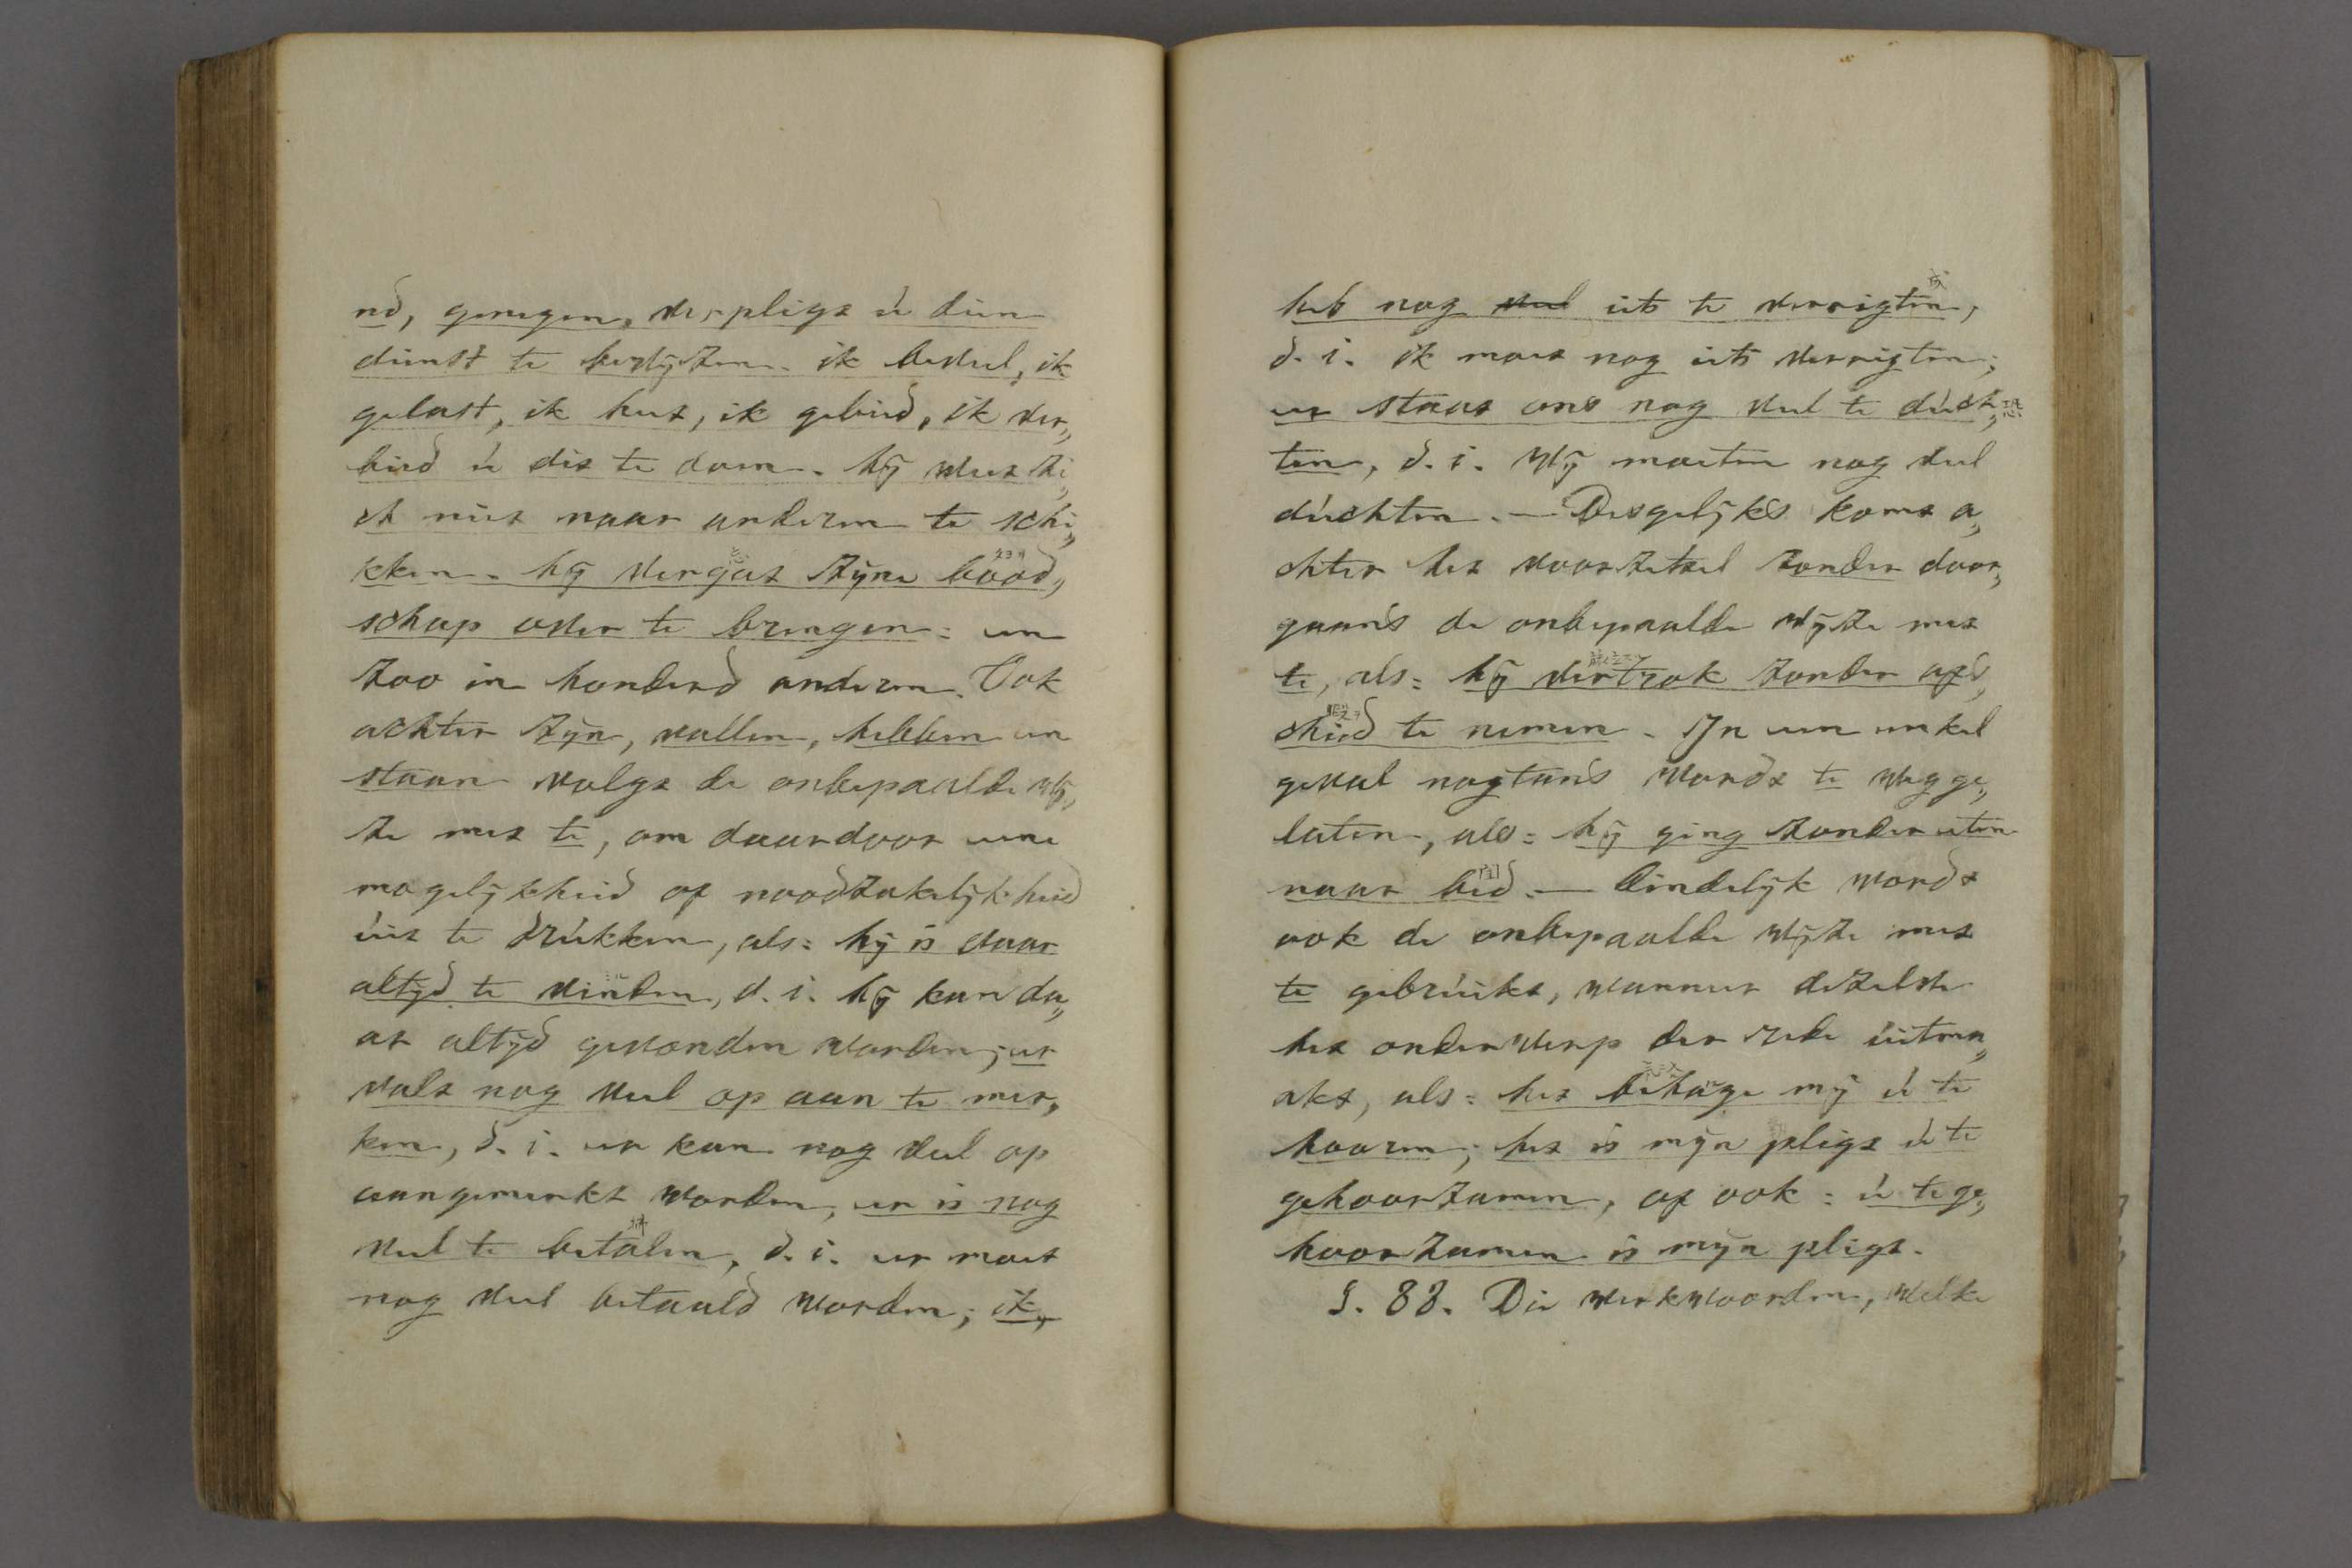 nd, genegen, verpligt u dien
dienst te bewijzen. ik beveel, ik
gelast, ik heet, ik gebied, ik ver„
bied u dit te doen. hij weet zi„
ch niet naar anderen te schi„
kken. hij vergat zijne bood„
schap over te brengen: en
zoo in honderd anderen. Ook
achter zijn, vallen, hebben en
staan volgt de onbepaalde wij„
ze met te, om daardoor eene
mogelijkheid of noodzakelijkheid
uit te drukken, als: hij is daar
altijd te vinden, d. i. hij kan da„
ar altijd gevonden worden; er
valt nog veel op aan te mer„
ken, d. i. er kan nog veel op
aangemerkt worden, er is nog
veel te betalen, d. i. er moet
nog veel betaald worden; ik
heb nog veel iets te verrigten,
d. i. ik moet nog iets verrigten;
er staat ons nog veel te duch„
ten, d. i. wij moeten nog veel
duchten. — Desgelijks komt a„
chter het voorzetsel zonder door„
gaans de onbepaalde wijze met
te, als: hij vertrok zonder afs„
cheid te nemen. In een enkel
geval nogtans wordt te wegge„
laten, als: hij ging zonder eten
naar bed. — Eindelijk wordt
ook de onbepaalde wijze met
te gebruikt, wanneer dezelve
het onderwerp der rede uitma„
akt, als: het behage mij u te
hooren; het is mijn pligt u te
gehoorzamen, of ook: u te ge„
hoorzamen is mijn pligt.
§. 88. Die werkwoorden, welke